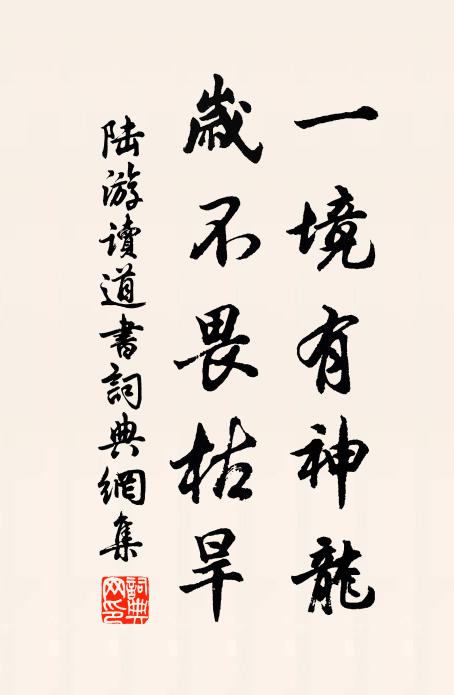 一境有神龍
歲不畏枯旱
陆游讀道書詞典網集
詞典
网印